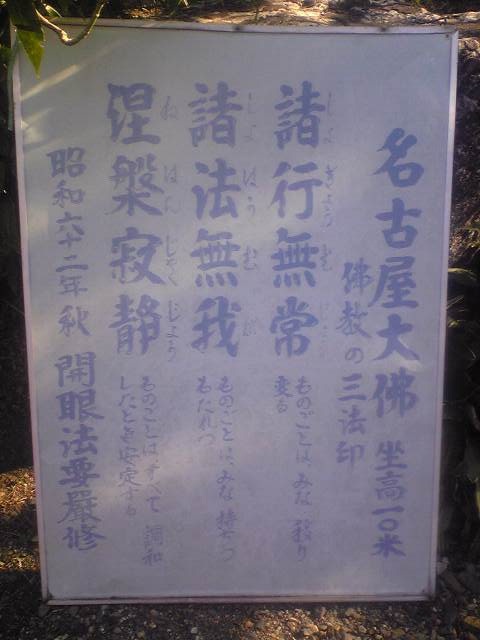 名古屋大佛 坐高一〇米
佛教の三法印
諸行無常
しょぎょうむじょう
ものごとは、みな、移り
変る
諸法無我
しょほうむが
ものごとは、みな、持ちつ
もたれつ
涅槃寂静
ねはんじゃくじょう
ものごとは、すべて 調和
したとき安定する
昭和六十二年秋 開眼法要厳修